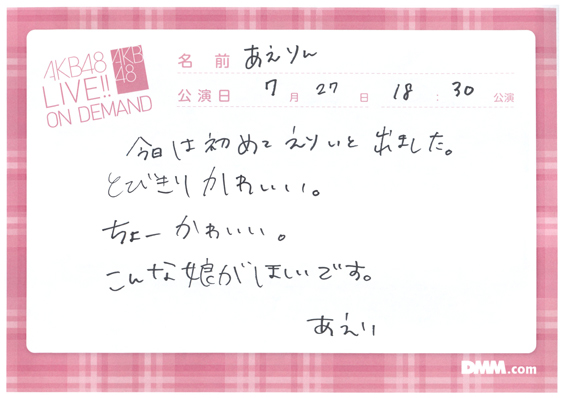 AKB48
LIVE!!
ON DEMAND
AKB
48
名前 あえりん
公演日 7月27日 18:30公演
今日は初めてえりぃと出ました。
とびきりかわいいい。
ちょーかわいい。
こんな娘がほしいです。
あえり
DMM.com